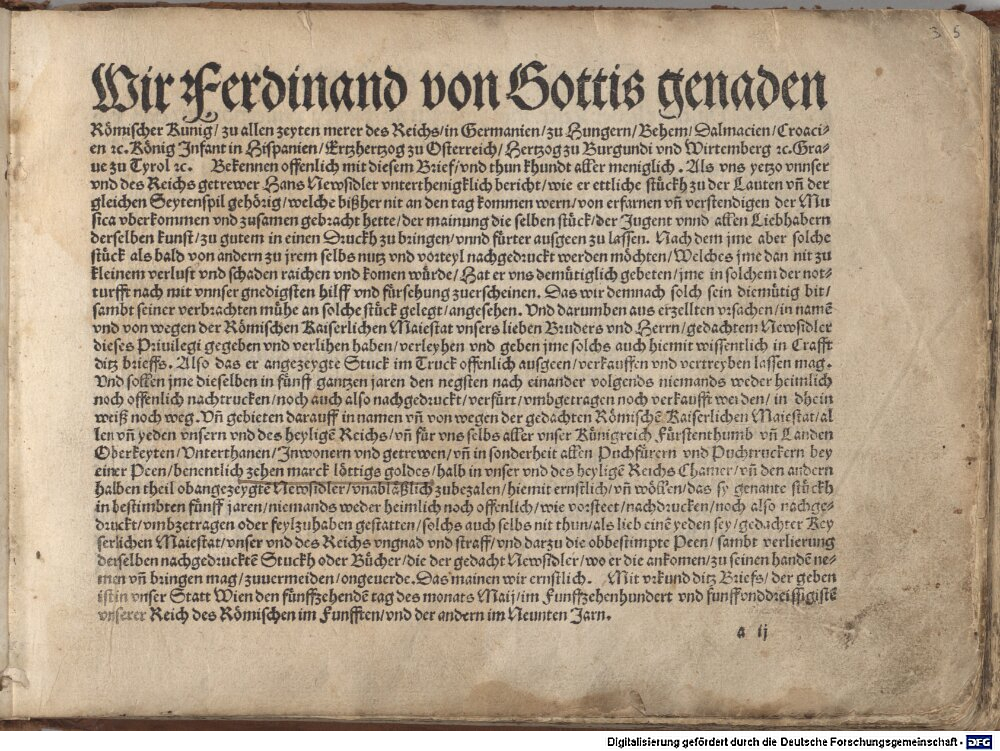 3 5
Wir Ferdinand von Gottis genaden
Römischer Kunig/ zu allen zeyten merer des Reichs/in Germanien/zu Hungern/Behem/Dalmacien/Croaci-
en ꝛc. König Infant in Hispanien/Ertzhertzog zu Osterreich/Hertzog zu Burgundi vnd Wirtemberg ꝛc. Gra-
ue zu Tyrol ꝛc. Bekennen offenlich mit diesem Brief/vnd thun khundt aller meniglich. Als vns yetzo vnnser
vnd des Reichs getrewer Hans Newsidler vnterthenigklich bericht/wie er ettliche stückh zu der Lauten vñ der
gleichen Seytenspil gehörig/welche bißher nit an den tag kommen wern/von erfarnen vñ verstendigen der Mu
sica vberkommen vnd zusamen gebracht hette/der mainung die selben stück/der Jugent vnnd allen Liebhabern
derselben kunst/zu gutem in einen Druckh zu bringen/vnnd fürter ausgeen zu lassen. Nach dem jme aber solche
stück als bald von andern zu jrem selbs nutz vnd vorteyl nachgedruckt werden möchten/Welches jme dan nit zu
kleinem verlust vnd schaden raichen vnd komen würde/Hat er vns demütiglich gebeten/jme in solchem der not-
turfft nach mit vnnser gnedigsten hilff vnd fürsehung zuerscheinen. Das wir demnach solch sein diemütig bit/
sambt seiner verbrachten mühe an solche stück gelegt/angesehen. Vnd darumben aus erzellten vrsachen/in namē
vnd von wegen der Römischen Kaiserlichen Maiestat vnsers lieben Bruders vnd Herrn/gedachtem Newsidler
dieses Priuilegi gegeben vnd verlihen haben/verleyhen vnd geben jme solchs auch hiemit wissentlich in Crafft
ditz brieffs. Also das er angezeygte Stuck im Truck offenlich ausgeen/verkauffen vnd vertreyben lassen mag.
Vnd sollen jme dieselben in fünff gantzen jaren den negsten nach einander volgends niemands weder heimlich
noch offenlich nachtrucken/noch auch also nachgedruckt/verfürt/vmbgetragen noch verkaufft werden/in dhein
weiß noch weg. Vñ gebieten darauff in namen vñ von wegen der gedachten Römischē Kaiserlichen Maiestat/al
len vñ yeden vnsern vnd des heyligē Reichs/vñ für vns selbs aller vnser Künigreich Fürstenthumb vñ Landen
Oberkeyten/Vnterthanen/Inwonern vnd getrewen/vñ in sonderheit allen Puchfürern vnd Puchtruckern bey
einer Peen/benentlich zehen marck löttigs goldes/halb in vnser vnd des heyligē Reichs Chamer/vñ den andern
halben theil obangezeygtē Newsidler/vnabläßlich zubezalen/hiemit ernstlich/vñ wöllen/das sy genante stückh
in bestimbten fünff jaren/niemands weder heimlich noch offenlich/wie vorsteet/nachdrucken/noch also nachge-
druckt/vmbzetragen oder feylzuhaben gestatten/solchs auch selbs nit thun/als lieb einē yeden sey/gedachter Key
serlichen Maiestat/vnser vnd des Reichs vngnad vnd straff/vnd darzu die obbestimpte Peen/sambt verlierung
derselben nachgedrucktē Stuckh oder Bücher/die der gedacht Newsidler/wo er die ankomen/zu seinen handē ne-
men vñ bringen mag/zuuermeiden/ongeuerde. Das mainen wir ernstlich. Mit vrkund ditz Briefs/der geben
ist in vnser Statt Wien den fünffzehendē tag des monats Maij/im Funffzehenhundert vnd funffvnddreissigistē
vnserer Reich des Römischen im Funfften/vnd der andern im Neunten Jarn.
a ij
Digitalisierung gefördert durch die Deutsche Forschungsgemeinschaft - DFG